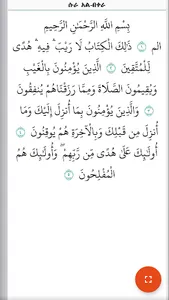 ሱራ አል-በቀራ
بِسْمِ اللَّهِ الرَّحْمَٰنِ الرَّحِيمِ
الم ۝١ ذَٰلِكَ الْكِتَابُ لَا رَيْبَ ۛ فِيهِ ۛ هُدًى
لِّلْمُتَّقِينَ ۝٢ الَّذِينَ يُؤْمِنُونَ بِالْغَيْبِ
وَيُقِيمُونَ الصَّلَاةَ وَمِمَّا رَزَقْنَاهُمْ يُنفِقُونَ
۝٣ وَالَّذِينَ يُؤْمِنُونَ بِمَا أُنزِلَ إِلَيْكَ وَمَا
أُنزِلَ مِن قَبْلِكَ وَبِالْآخِرَةِ هُمْ يُوقِنُونَ ۝٤
أُولَٰئِكَ عَلَىٰ هُدًى مِّن رَّبِّهِمْ ۖ وَأُولَٰئِكَ هُمُ
الْمُفْلِحُونَ ۝٥